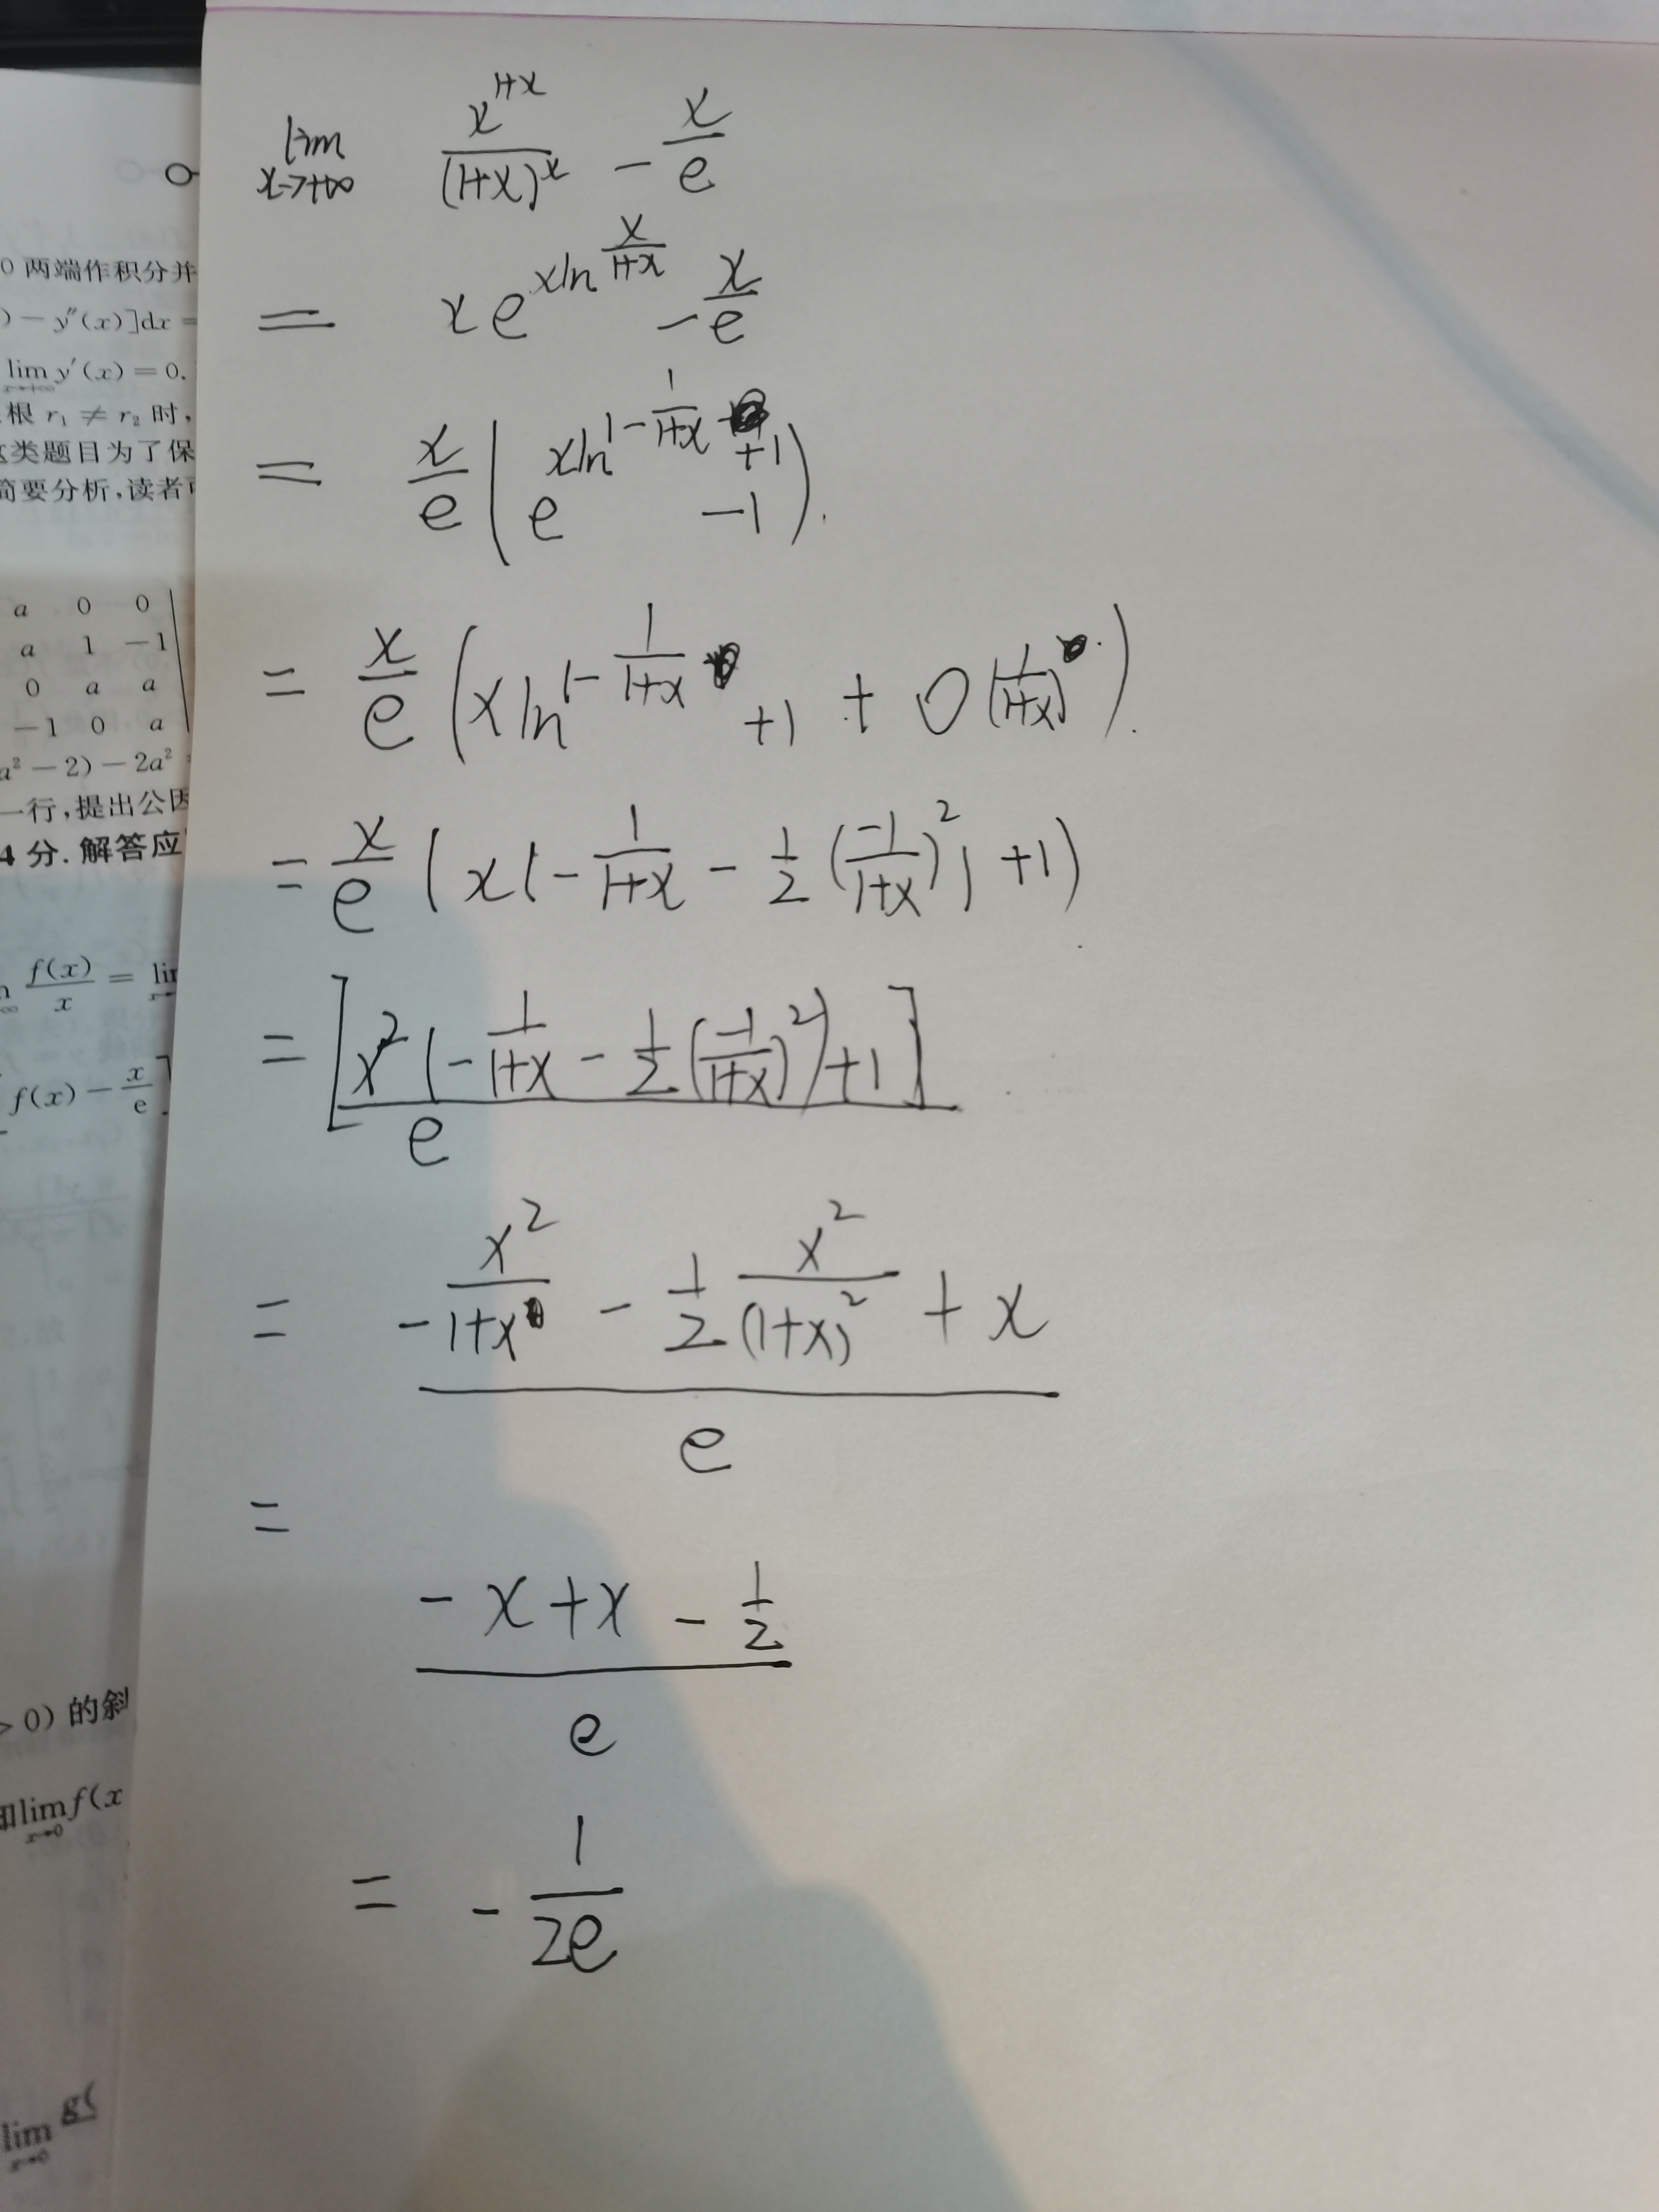 0 两端作积分并
) − y″(x)]dx =
lim y′(x) = 0.
x→+∞
根 r₁ ≠ r₂ 时,
这类题目为了保
简要分析,读者可
a 0 0
a 1 −1
0 a a
−1 0 a
a² − 2) − 2a²
一行,提出公因
4 分. 解答应
f(x)/x = lim
f(x) − x/e ]
> 0) 的斜
和 lim f(x
x→0
lim g(
x→0
lim x→+∞ x^(1+x)/(1+x)^x − x/e
= x e^(x ln x/(1+x)) − x/e
= x/e ( e^(x ln 1 − 1/(1+x) +1) −1 ).
= x/e ( x ln 1 − 1/(1+x) +1 + o(1/(1+x)) ).
= x/e ( x( − 1/(1+x) − 1/2 (−1/(1+x))² ) +1 )
= [ x² ( − 1/(1+x) − 1/2 (−1/(1+x))² ) +1 ] / e
= ( − x²/(1+x) − 1/2 x²/(1+x)² + x ) / e
=
( − x + x − 1/2 ) / e
= − 1/2e